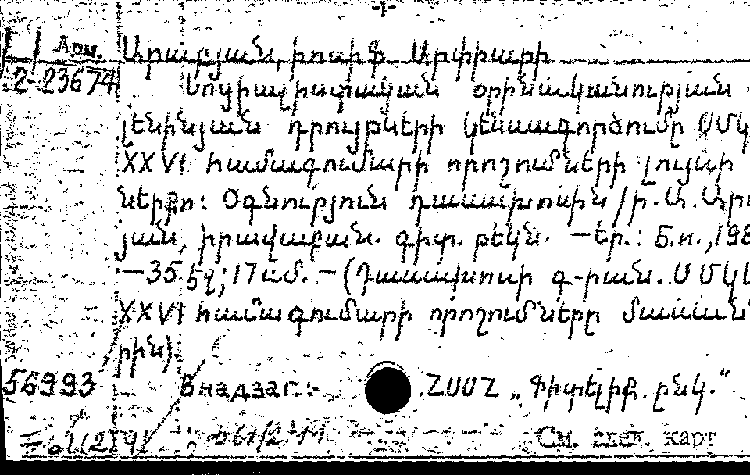 -1-
Арм. Արաբյան, իոսիֆ Արփիարի
2-23674 Սոցիալիստական օրինականության
լենինյան դրույթների կենսագործումը ՍՄԿ
XXVI համագումարի որոշումների լույսի
ներքո: Օգնություն դասախոսին /Ի.Ա.Արա
յան, իրավաբան. գիտ. թեկն. —Եր.: Բ.ո., 198
—35 էջ; 17սմ. —(Դասախոսի գ-րան. ՍՄԿԿ
XXVI համագումարի որոշումները մասսան
րին).
56993 Վնադзաг.:- ՀՍՍՀ „Գիտելիք ընկ."
См. след. карт